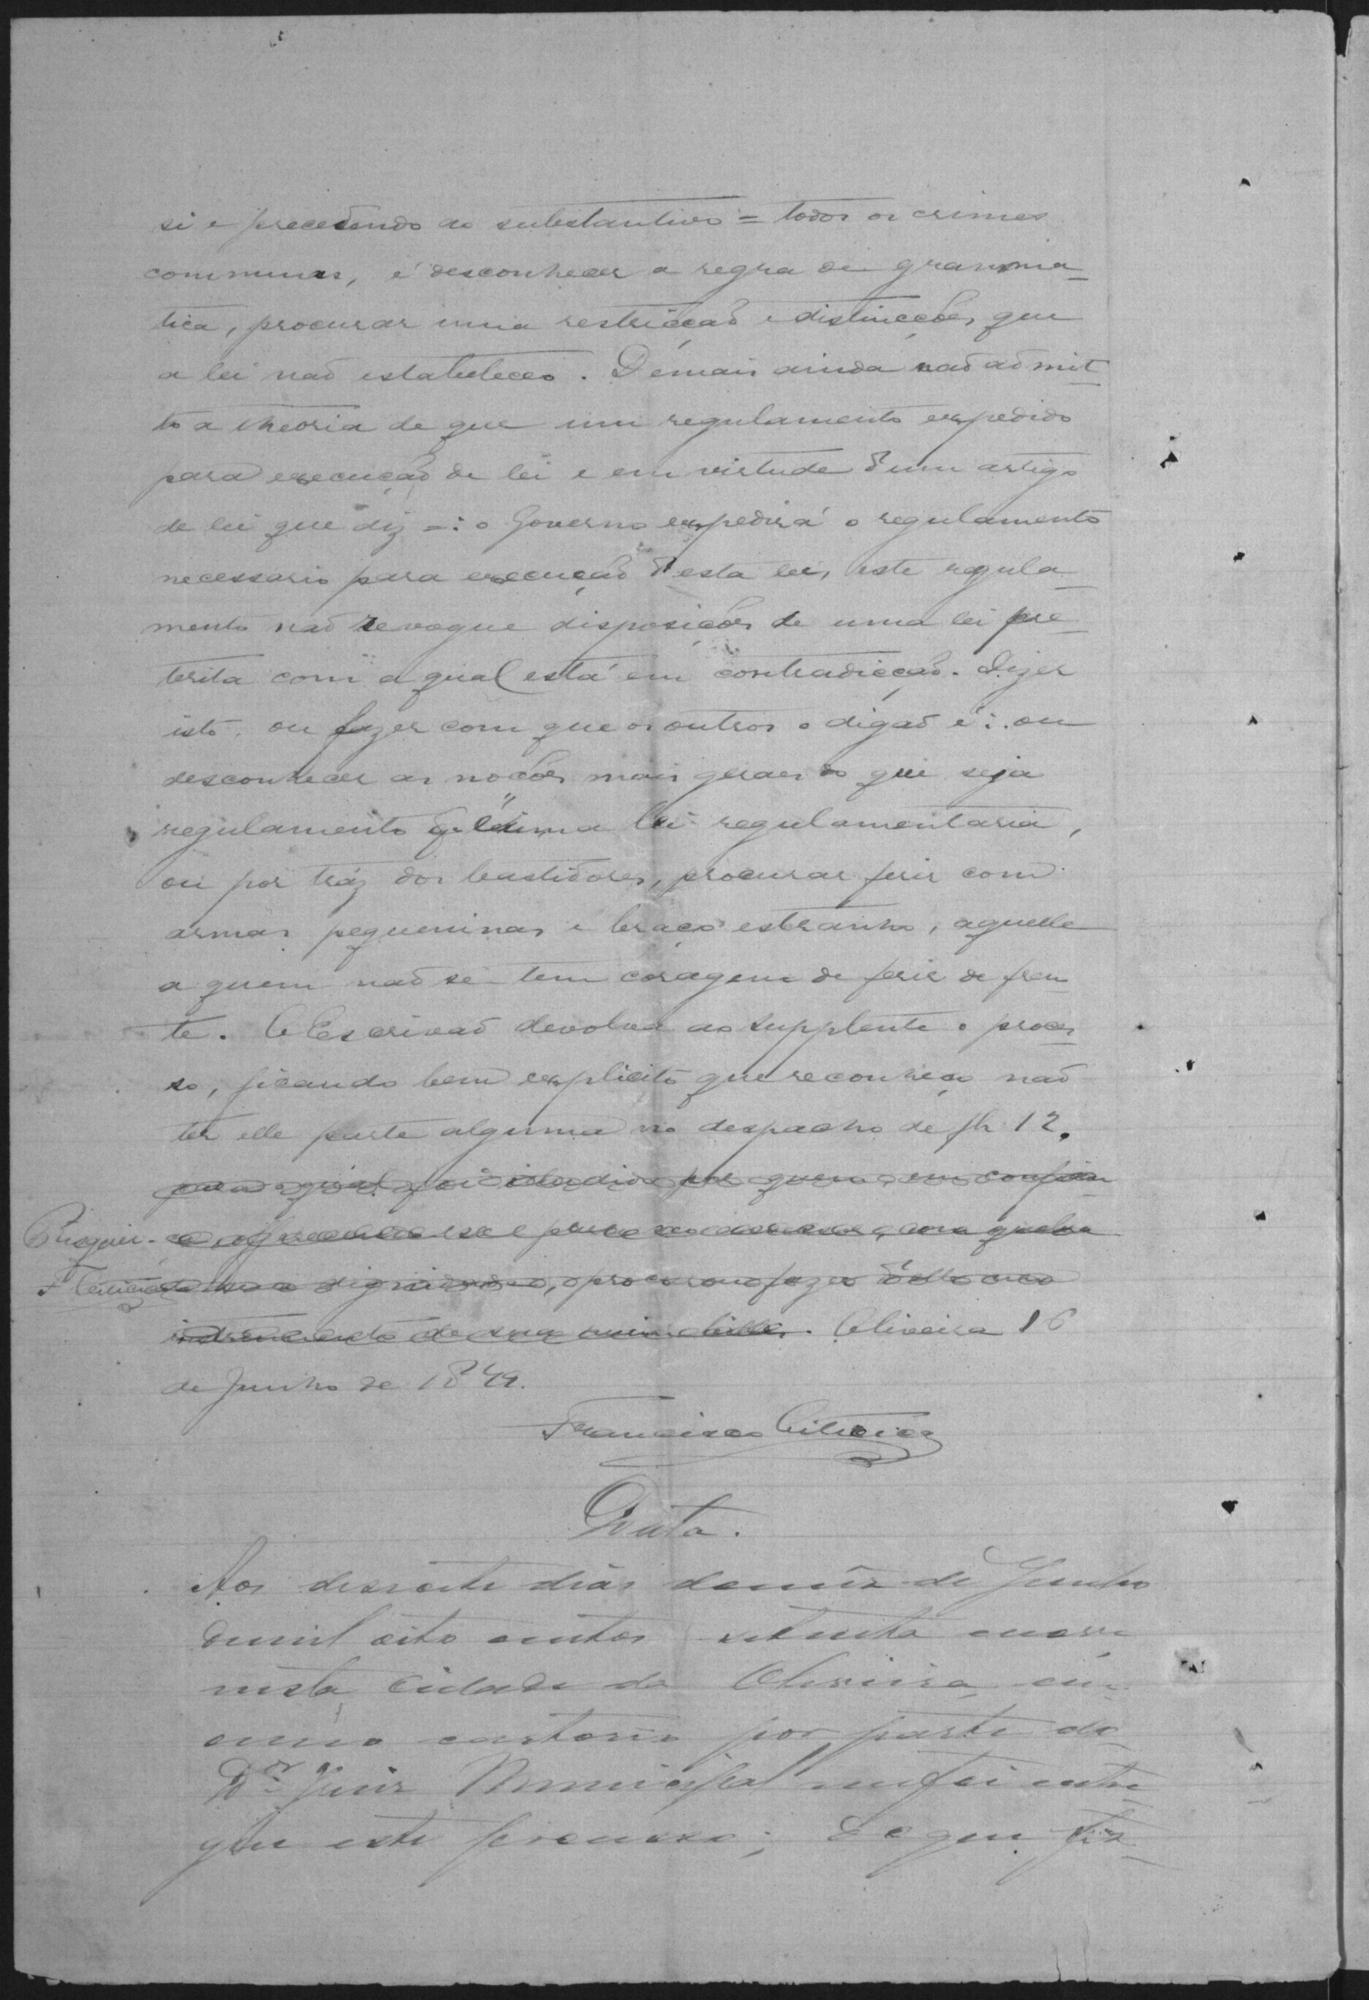 si e precedendo ao substantivo = todos os crimes
communs, é desconhecer a regra de gramma-
tica, procurar uma restricção e distincções, que
a lei não estabeleceo. Demais ainda não admit-
to a theoria de que um regulamento expedido
para execução de lei e em virtude d'um artigo
de lei que diz =: o Governo expedirá o regulamento
necessario para execução d'esta lei, este regula-
mento não revogue disposições de uma lei pre-
terita com a qual está em contradicção. Dizer
isto, ou fazer com que os outros o digão é: ou
desconhecer as noções mais geraes do que seja
regulamento lei regulamentaria,
ou por tráz dos bastidores, procurar ferir com
armas pequeninas e braço estranho, aquelle
a quem não se tem coragem de ferir de fren-
te. O Escrivão devolva ao supplente o proces-
so, ficando bem explicito que reconheço não
ter elle parte alguma no despacho de fl 12.
para o qual foi illudido por quem, em confian-
Risquei -
o procurou fazer
de sua . Oliveira 16
de Junho de 1879.
Francisco
Data.
Aos desoito dias do mês de Junho
de mil oito centos setenta e nove
nesta Cidade da Oliveira em
meu cartorio por parte do
Dr. Juiz Municipal me foi entre
gue este processo; do que fiz